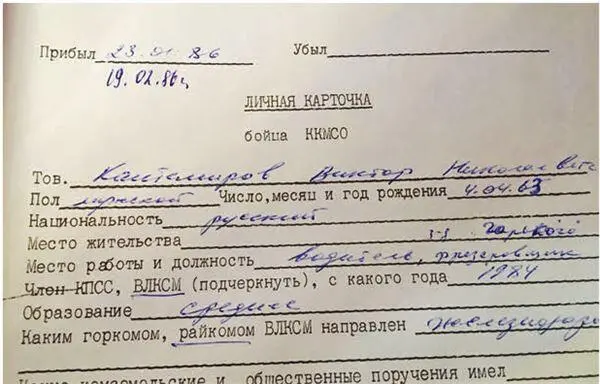 Прибыл 23.01.86 Убыл
19.02.86г.
ЛИЧНАЯ КАРТОЧКА
бойца ККМСО
Тов. Кантемиров Виктор Николаевич
Пол мужской Число, месяц и год рождения 4.04.63
Национальность русский
Место жительства г. Горького
Место работы и должность водитель, фрезеровщик
Член КПСС, ВЛКСМ (подчеркнуть), с какого года 1984
Образование среднее
Каким горкомом, райкомом ВЛКСМ направлен
Какие комсомольские и общественные поручения имел